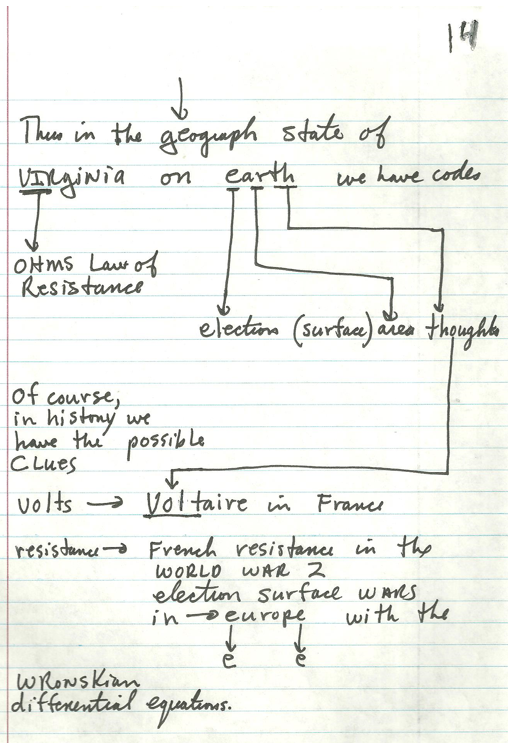 14
Thus in the geograph state of
VIRginia on earth we have codes
OHMS Law of
Resistance
election (surface) area thoughts
Of course,
in history we
have the possible
CLUES
volts → Voltaire in France
resistance → French resistance in the
WORLD WAR 2
election surface WARS
in → europe with the
e e
WRONSKian
differential equations.